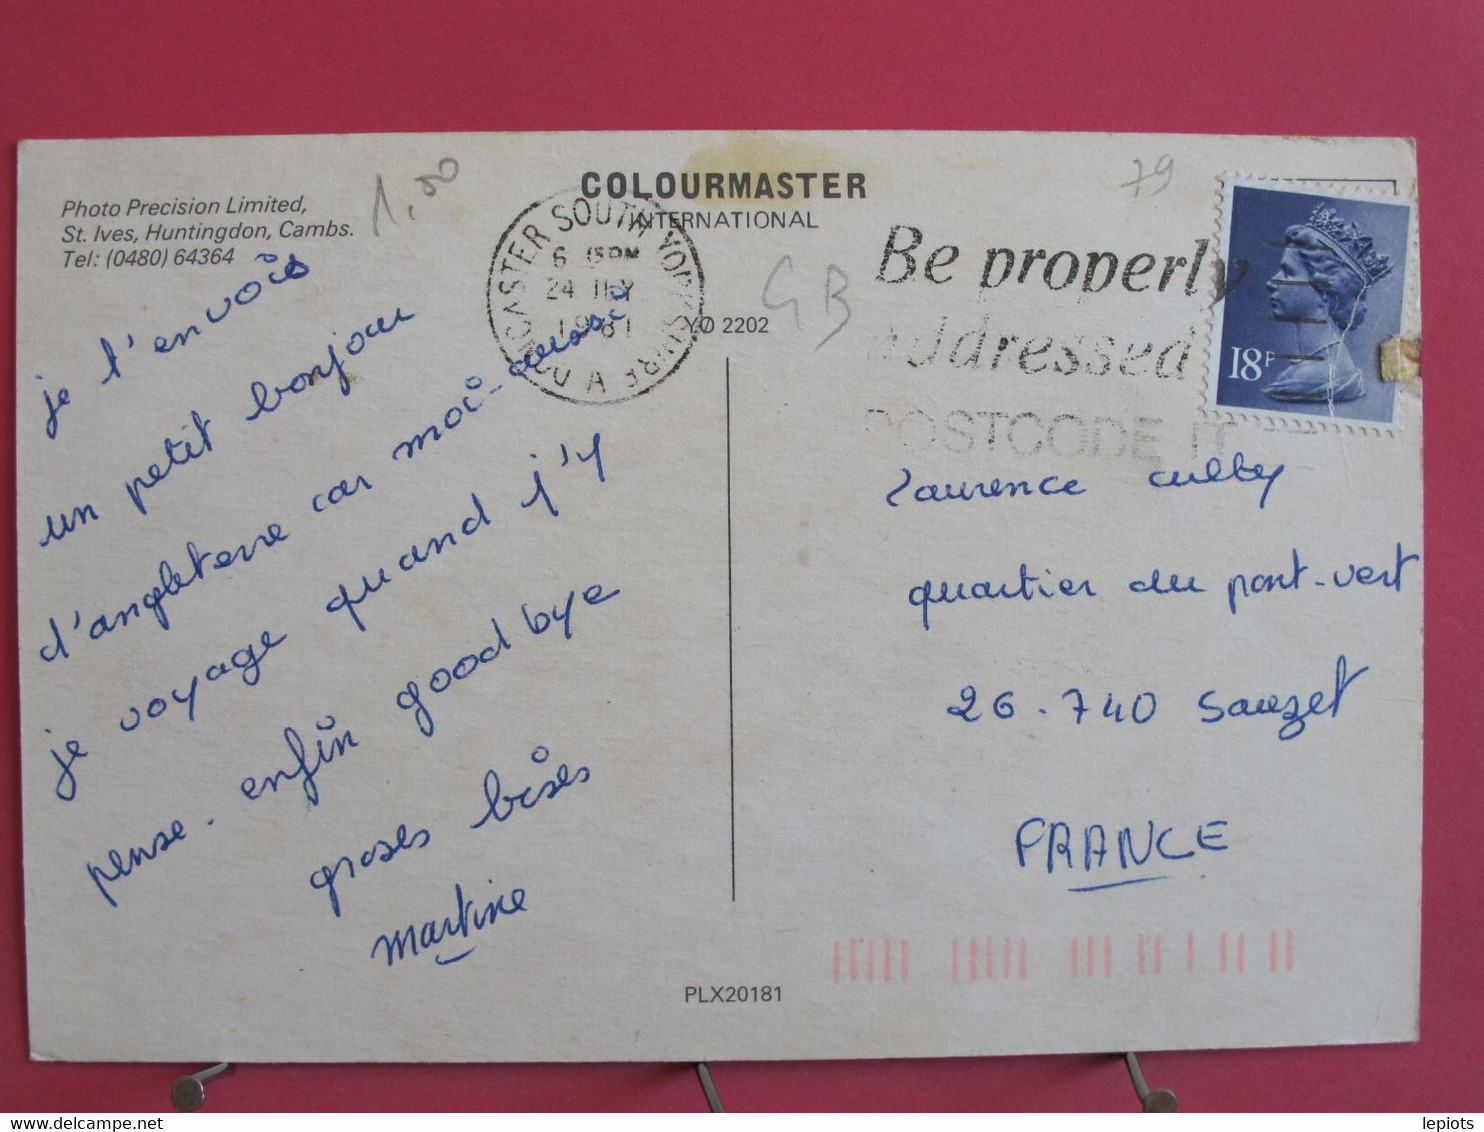 Photo Precision Limited,
St. Ives, Huntingdon, Cambs.
Tel: (0480) 64364
1,00
COLOURMASTER
INTERNATIONAL
79
DONCASTER SOUTH YORKSHIRE A
6 15PM
24 JLY
1981
YO 2202
GB
Be properly
addressed
POSTCODE IT
18P
je t'envois
un petit bonjour
d'angleterre car moi-aussi
je voyage quand j'y
pense. enfin good bye
groses bises
martine
Laurence culby
quartier du pont-vert
26.740 Sauzet
FRANCE
PLX20181
lepiots
www.delcampe.net